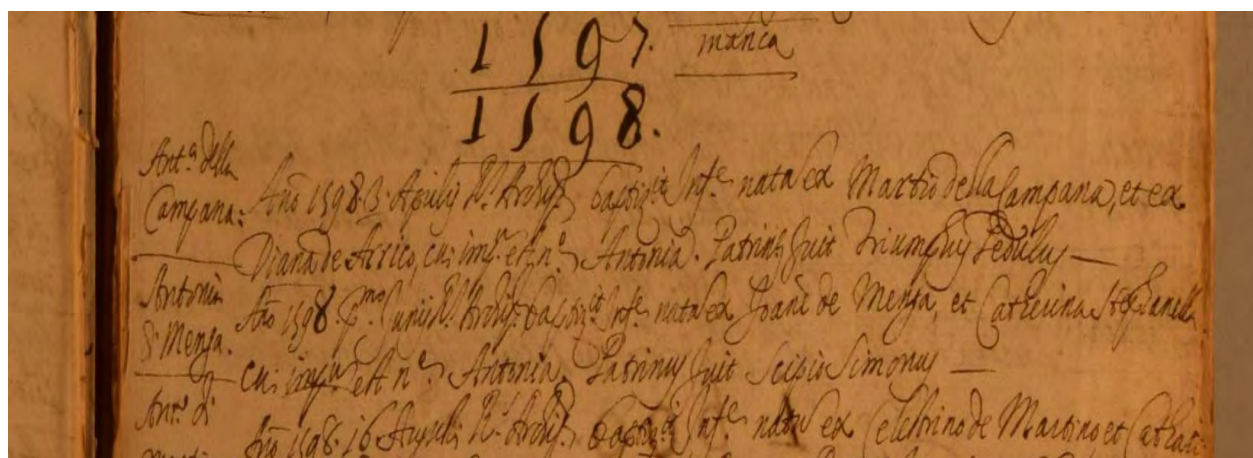 1597. manca
1598.
Ant.a della
Campana: Año 1598. 3. Aprilis R.s Archip. baptiz.it Inf.e nata ex Martio della Campana, et ex
Diana de Acrico, cui imp.m est n.e Antonia. Patrinus fuit Triumphus Pedulus
Antonia
di Menza. Año 1598. p.mo Junii R.s Archip. baptiz.it Inf.e nata ex Joani de Menza, et Catherina Stephanella
cui imp.m est n.e Antonia, Patrinus fuit Scipio Simonus
Ant.a di
Año 1598. 16 Augusti R.s Archip. baptiz.it Inf.e nata ex Celestrino de Martino et